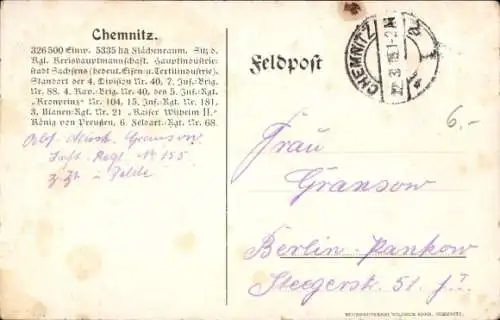 Chemnitz.
326500 Einw. 5335 ha Flächenraum. Sitz d.
Kgl. Kreishauptmannschaft. Hauptindustrie-
stadt Sachsens (bedeut. Eisen- u. Textilindustrie).
Standort der 4. Division Nr. 40, 7. Inf.-Brig.
Nr. 88, 4. Kav.-Brig. Nr. 40, des 5. Inf.-Rgt.
„Kronprinz“ Nr. 104, 15. Inf.-Rgt. Nr. 181,
3. Ulanen-Rgt. Nr. 21 „Kaiser Wilhelm II.
König von Preußen, 6. Feldart.-Rgt. Nr. 68.
Abs. Gransow
Inft. Regt. No 155
z. Zt. i. Felde
Feldpost
CHEMNITZ
6.-
Frau
Gransow
Berlin-Pankow
Steegerstr. 51. I.